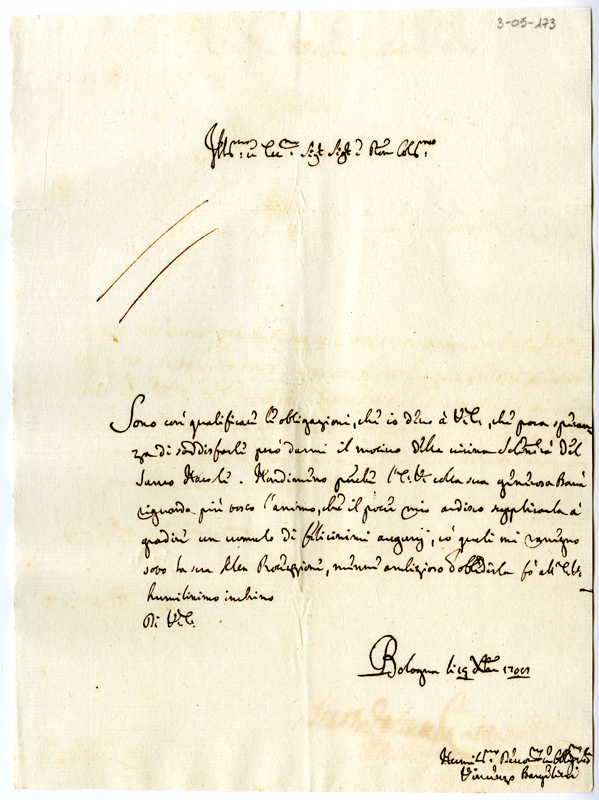 3-05-173
Ill.mo et Ecc.mo Sig.r Sig.r e Pron Col.mo
Sono così qualificate le obligazioni, che io devo à V.E., che poca speran-
za di soddisfarle può darmi il motivo della vicina Solennità del
Santo Natale. Nondimeno perche l'E.V. colla sua generosa Bontà
riguarda più tosto l'animo, che il poter mio ardisco supplicarla à
gradire un cumulo di felicissimi augurij, co' quali mi
sotto la sua Protezzione, mentre ambizioso d'obbedirla fò all'E.V.
humilissimo inchino
Di V.E.
Bologna li 19 Xbre
Humiliss.mo
Vincenzo Bargellini